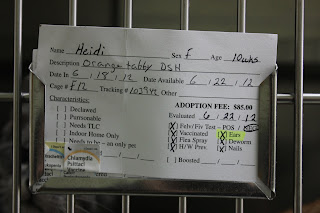 Name Heidi Sex F Age 10wks
Description Orange tabby DSH
Date In 6 , 18 , 12 Date Available 6 , 22 , 12
Cage # F12 Tracking #
Characteristics: ADOPTION FEE: $85.00
Declawed Evaluated 6 , 22 , 12
Personable X Felv/Fiv Test – POS /
Needs TLC X Vaccinated X Ears
Indoor Home Only X Flea Spray X Deworm
Needs to be – an only pet X H/W Prev. X Nails
Boosted
Chlamydia
Psittaci
Vaccine